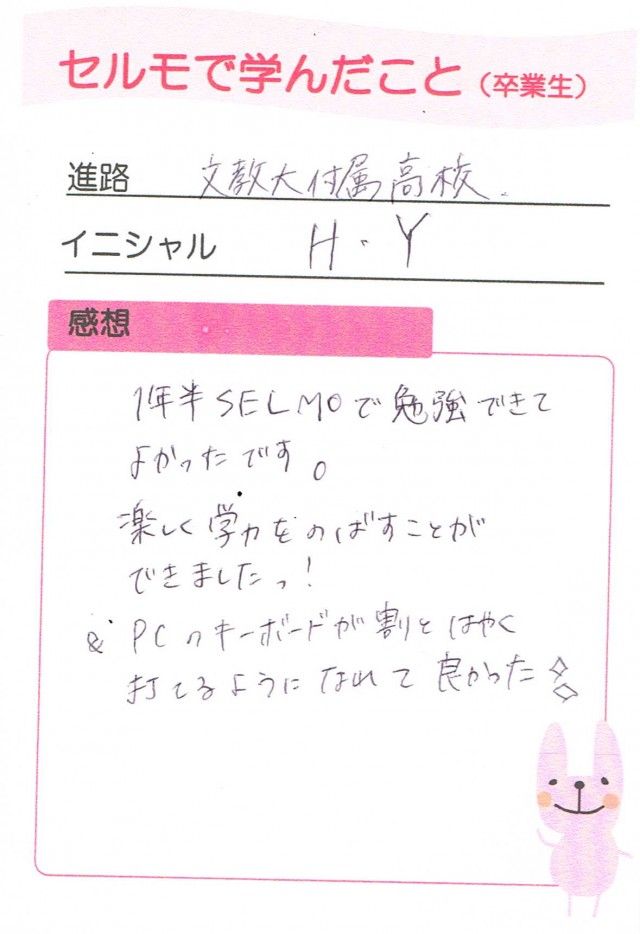 セルモで学んだこと（卒業生）
進路 文教大付属高校.
イニシャル H・Y
感想
1年半SELMOで勉強できて
よかったです。
楽しく学力をのばすことが
できましたっ！
& PCのキーボードが割とはやく
打てるようになれて良かった